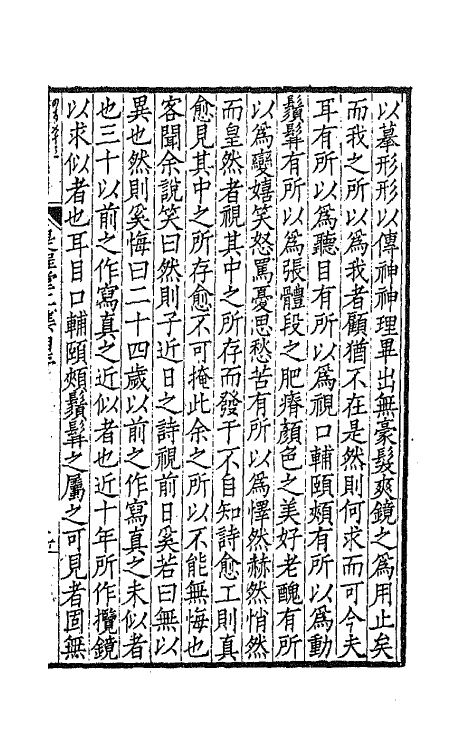 以摹形形以傳神神理畢出無豪髮爽鏡之為用止矣
而我之所以為我者顧猶不在是然則何求而可今夫
耳有所以為聽目有所以為視口輔頤頰有所以為動
鬚髯有所以為張體段之肥瘠顏色之美好老醜有所
以為孌嬉笑怒罵憂思愁苦有所以為懌然赫然悄然
而皇然者視其中之所存而發于不自知詩愈工則真
愈見其中之所存愈不可掩此余之所以不能無悔也
客聞余說笑曰然則子近日之詩視前日奚若曰無以
異也然則奚悔曰二十四歲以前之作寫真之未似者
也三十以前之作寫真之近似者也近十年所作攬鏡
以求似者也耳目口輔頤頰鬚髯之屬之可見者固無